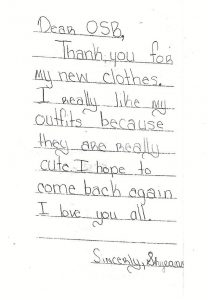 Dear OSB,
Thank you for
my new clothes.
I really like my
outfits because
they are really
cute. I hope to
come back again
I love you all.
Sincerly,